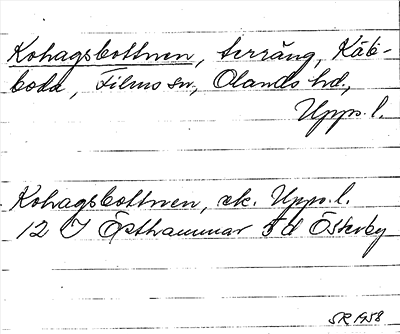 Kohagsbottnen, terräng, Käb-
boda, Films sn, Olands hd,
Upps. l.
Kohagsbottnen, ek. Upps. l.
12 I Östhammar 5 d Österby
SR 1958